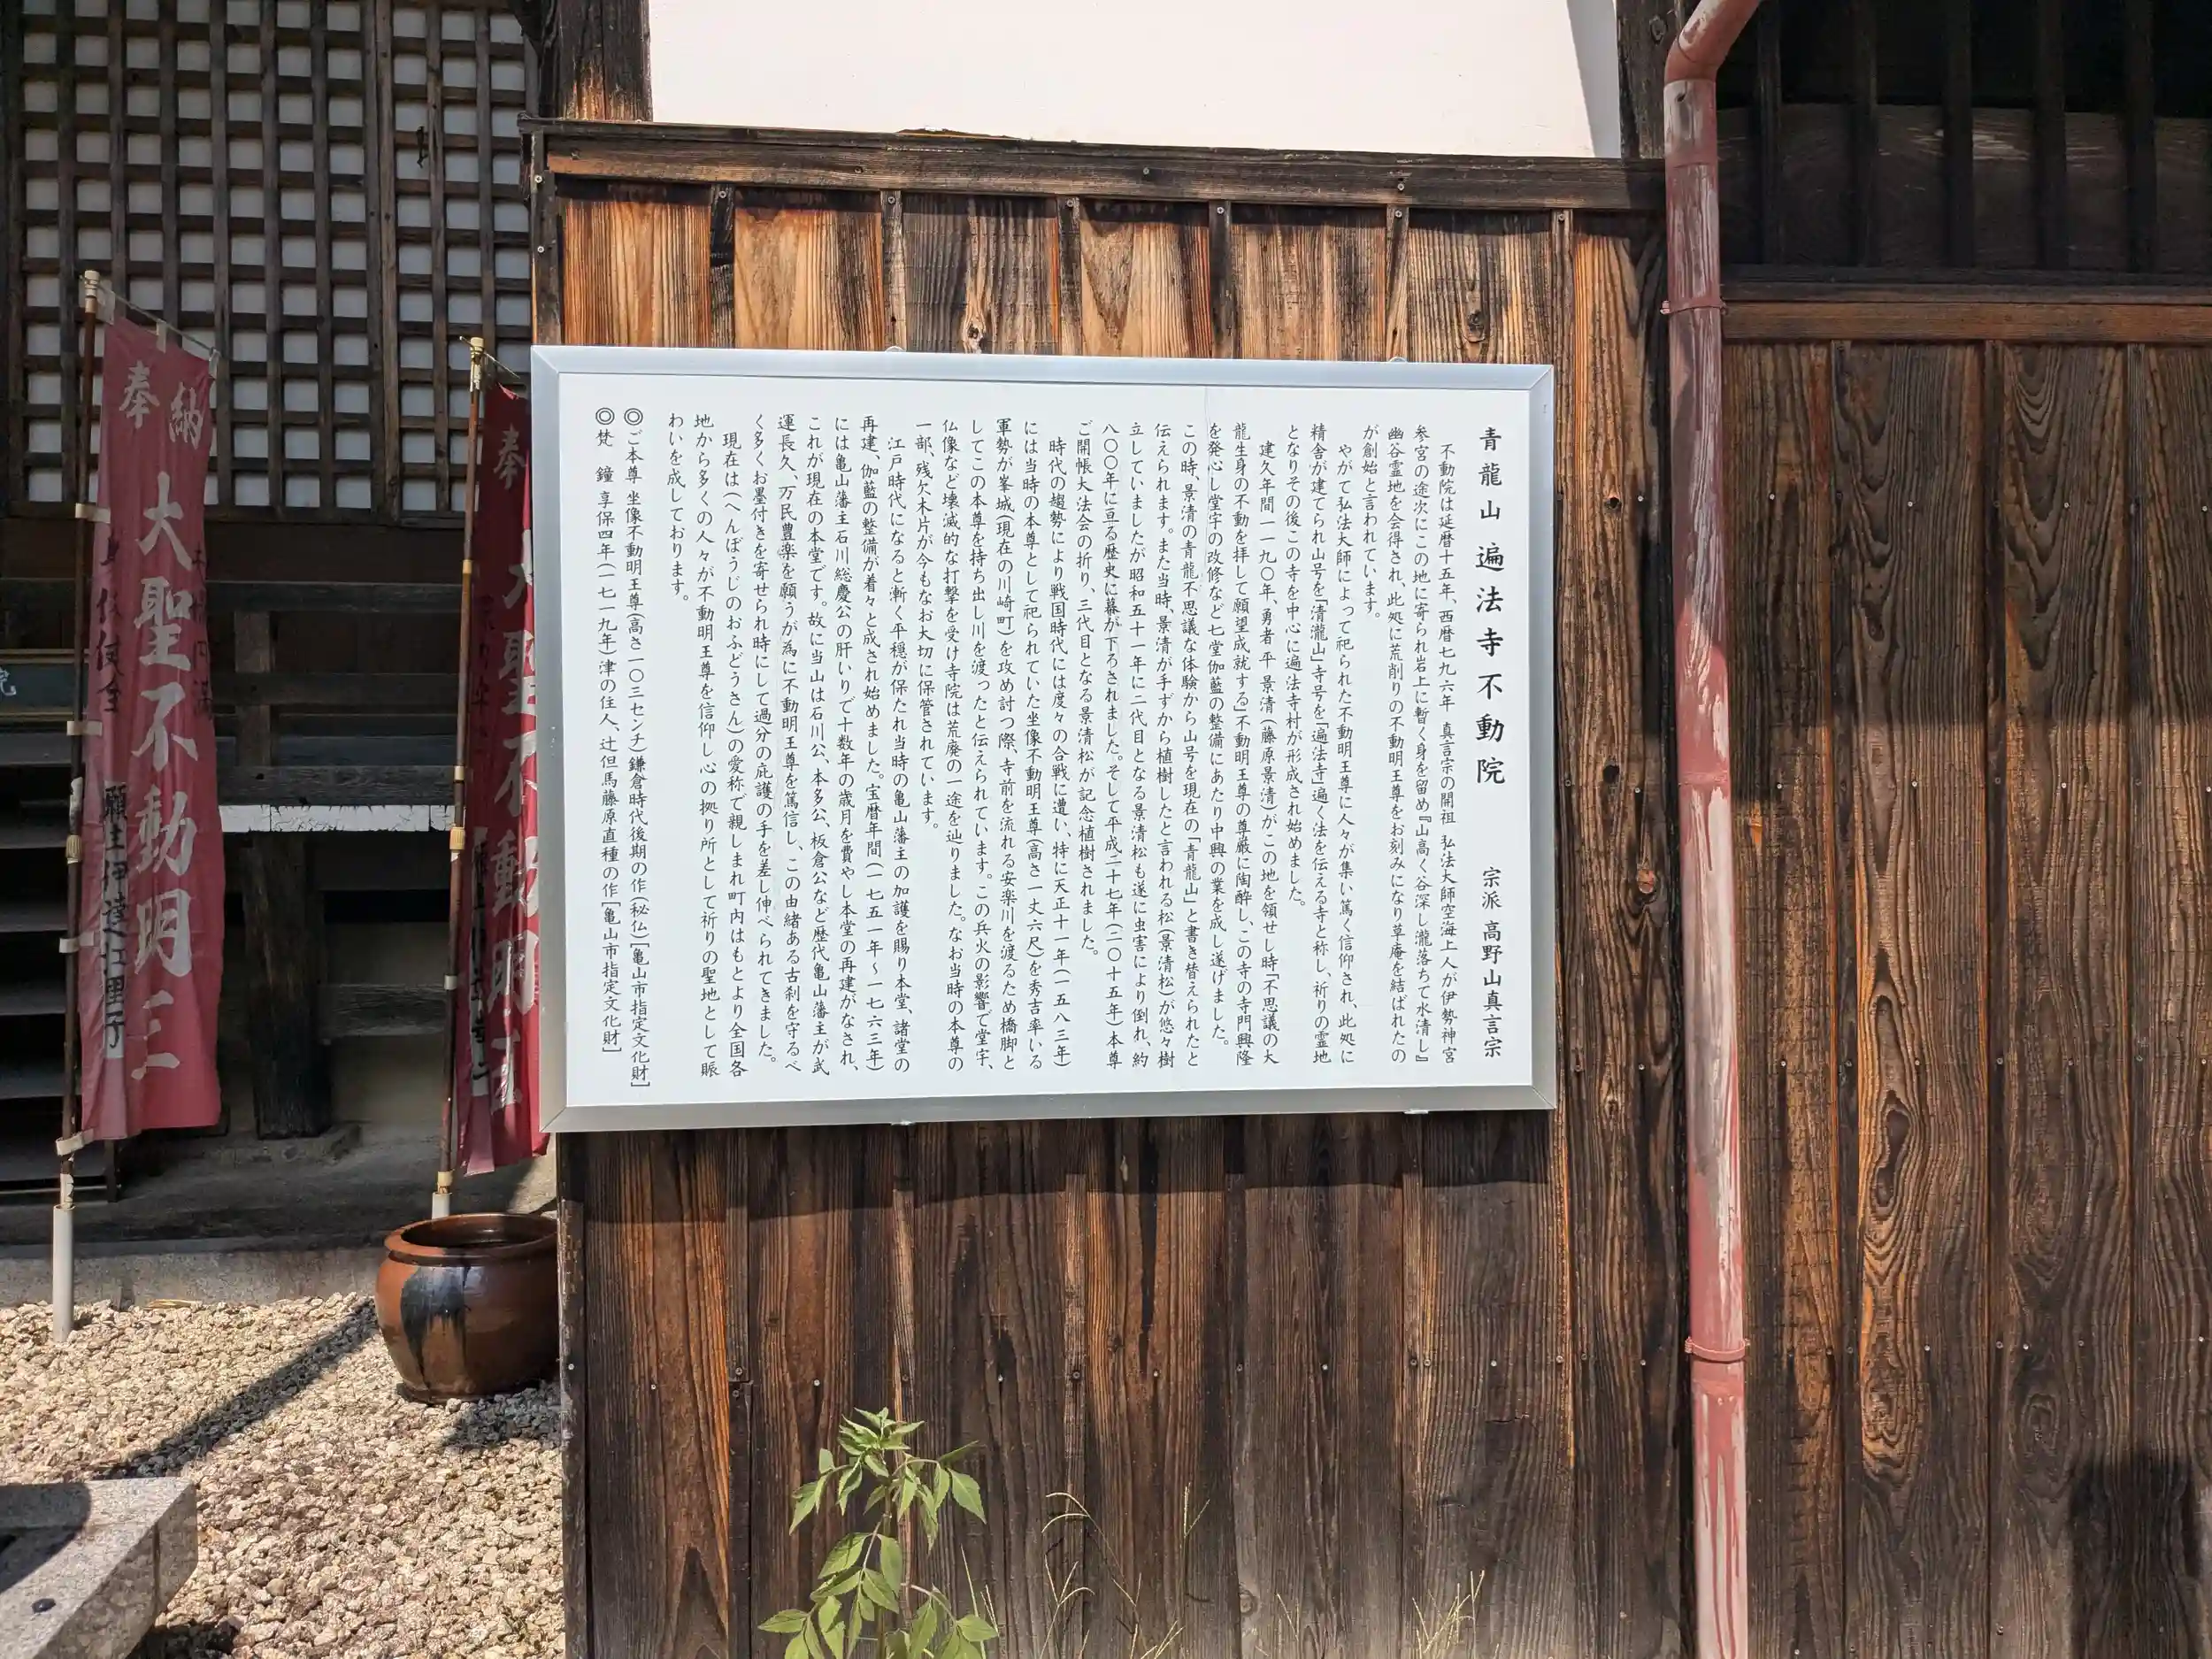 青龍山遍法寺不動院 宗派 高野山真言宗
不動院は延暦十五年、西暦七九六年 真言宗の開祖 弘法大師空海上人が伊勢神宮
参宮の途次にこの地に寄られ岩上に暫く身を留め『山高く谷深し瀧落ちて水清し』
幽谷霊地を会得され、此処に荒削りの不動明王尊をお刻みになり草庵を結ばれたの
が創始と言われています。
やがて弘法大師によって祀られた不動明王尊に人々が集い篤く信仰され、此処に
精舎が建てられ山号を「清瀧山」寺号を「遍法寺」遍く法を伝える寺と称し、祈りの霊地
となりその後この寺を中心に遍法寺村が形成され始めました。
建久年間一一九〇年、勇者 平 景清(藤原景清)がこの地を領せし時「不思議の大
龍生身の不動を拝して願望成就する」不動明王尊の尊厳に陶酔し、この寺の寺門興隆
を発心し堂宇の改修など七堂伽藍の整備にあたり中興の業を成し遂げました。
この時、景清の青龍不思議な体験から山号を現在の「青龍山」と書き替えられたと
伝えられます。また当時、景清が手ずから植樹したと言われる松(景清松)が悠々樹
立していましたが昭和五十一年に二代目となる景清松も遂に虫害により倒れ、約
八〇〇年に亘る歴史に幕が下ろされました。そして平成二十七年(二〇十五年)本尊
ご開帳大法会の折り、三代目となる景清松が記念植樹されました。
時代の趨勢により戦国時代には度々の合戦に遭い、特に天正十一年(一五八三年)
には当時の本尊として祀られていた坐像不動明王尊(高さ一丈六尺)を秀吉率いる
軍勢が峯城(現在の川崎町)を攻め討つ際、寺前を流れる安楽川を渡るため橋脚と
してこの本尊を持ち出し川を渡ったと伝えられています。この兵火の影響で堂宇、
仏像など壊滅的な打撃を受け寺院は荒廃の一途を辿りました。なお当時の本尊の
一部、残欠木片が今もなお大切に保管されています。
江戸時代になると漸く平穏が保たれ当時の亀山藩主の加護を賜り本堂、諸堂の
再建、伽藍の整備が着々と成され始めました。宝暦年間(一七五一年～一七六三年)
には亀山藩主石川総慶公の肝いりで十数年の歳月を費やし本堂の再建がなされ、
これが現在の本堂です。故に当山は石川公、本多公、板倉公など歴代亀山藩主が武
運長久、万民豊楽を願うが為に不動明王尊を篤信し、この由緒ある古刹を守るべ
く多くお墨付きを寄せられ時にして過分の庇護の手を差し伸べられてきました。
現在は(へんぼうじのおふどうさん)の愛称で親しまれ町内はもとより全国各
地から多くの人々が不動明王尊を信仰し心の拠り所として祈りの聖地として賑
わいを成しております。
◎ご本尊 坐像不動明王尊(高さ一〇三センチ)鎌倉時代後期の作(秘仏)[亀山市指定文化財]
◎梵 鐘 享保四年(一七一九年)津の住人、辻但馬藤原直種の作[亀山市指定文化財]
奉納
大聖不動明王
願主 伊達江里子
奉
大聖不動明王
院